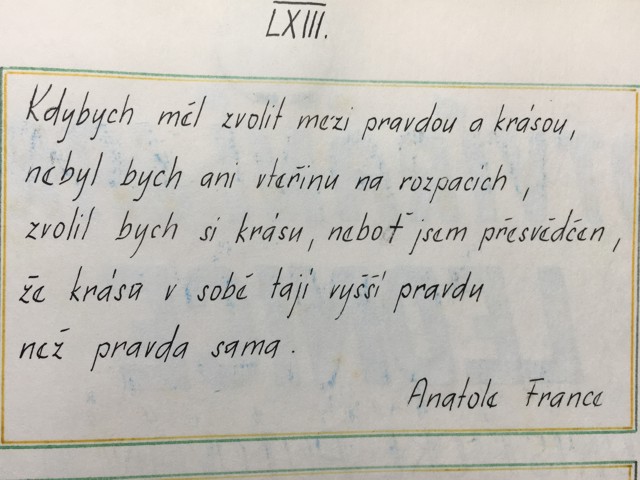 LXIII.
Kdybych měl zvolit mezi pravdou a krásou,
nebyl bych ani vteřinu na rozpacích,
zvolil bych si krásu, neboť jsem přesvědčen,
že krása v sobě tají vyšší pravdu
než pravda sama.
Anatole France